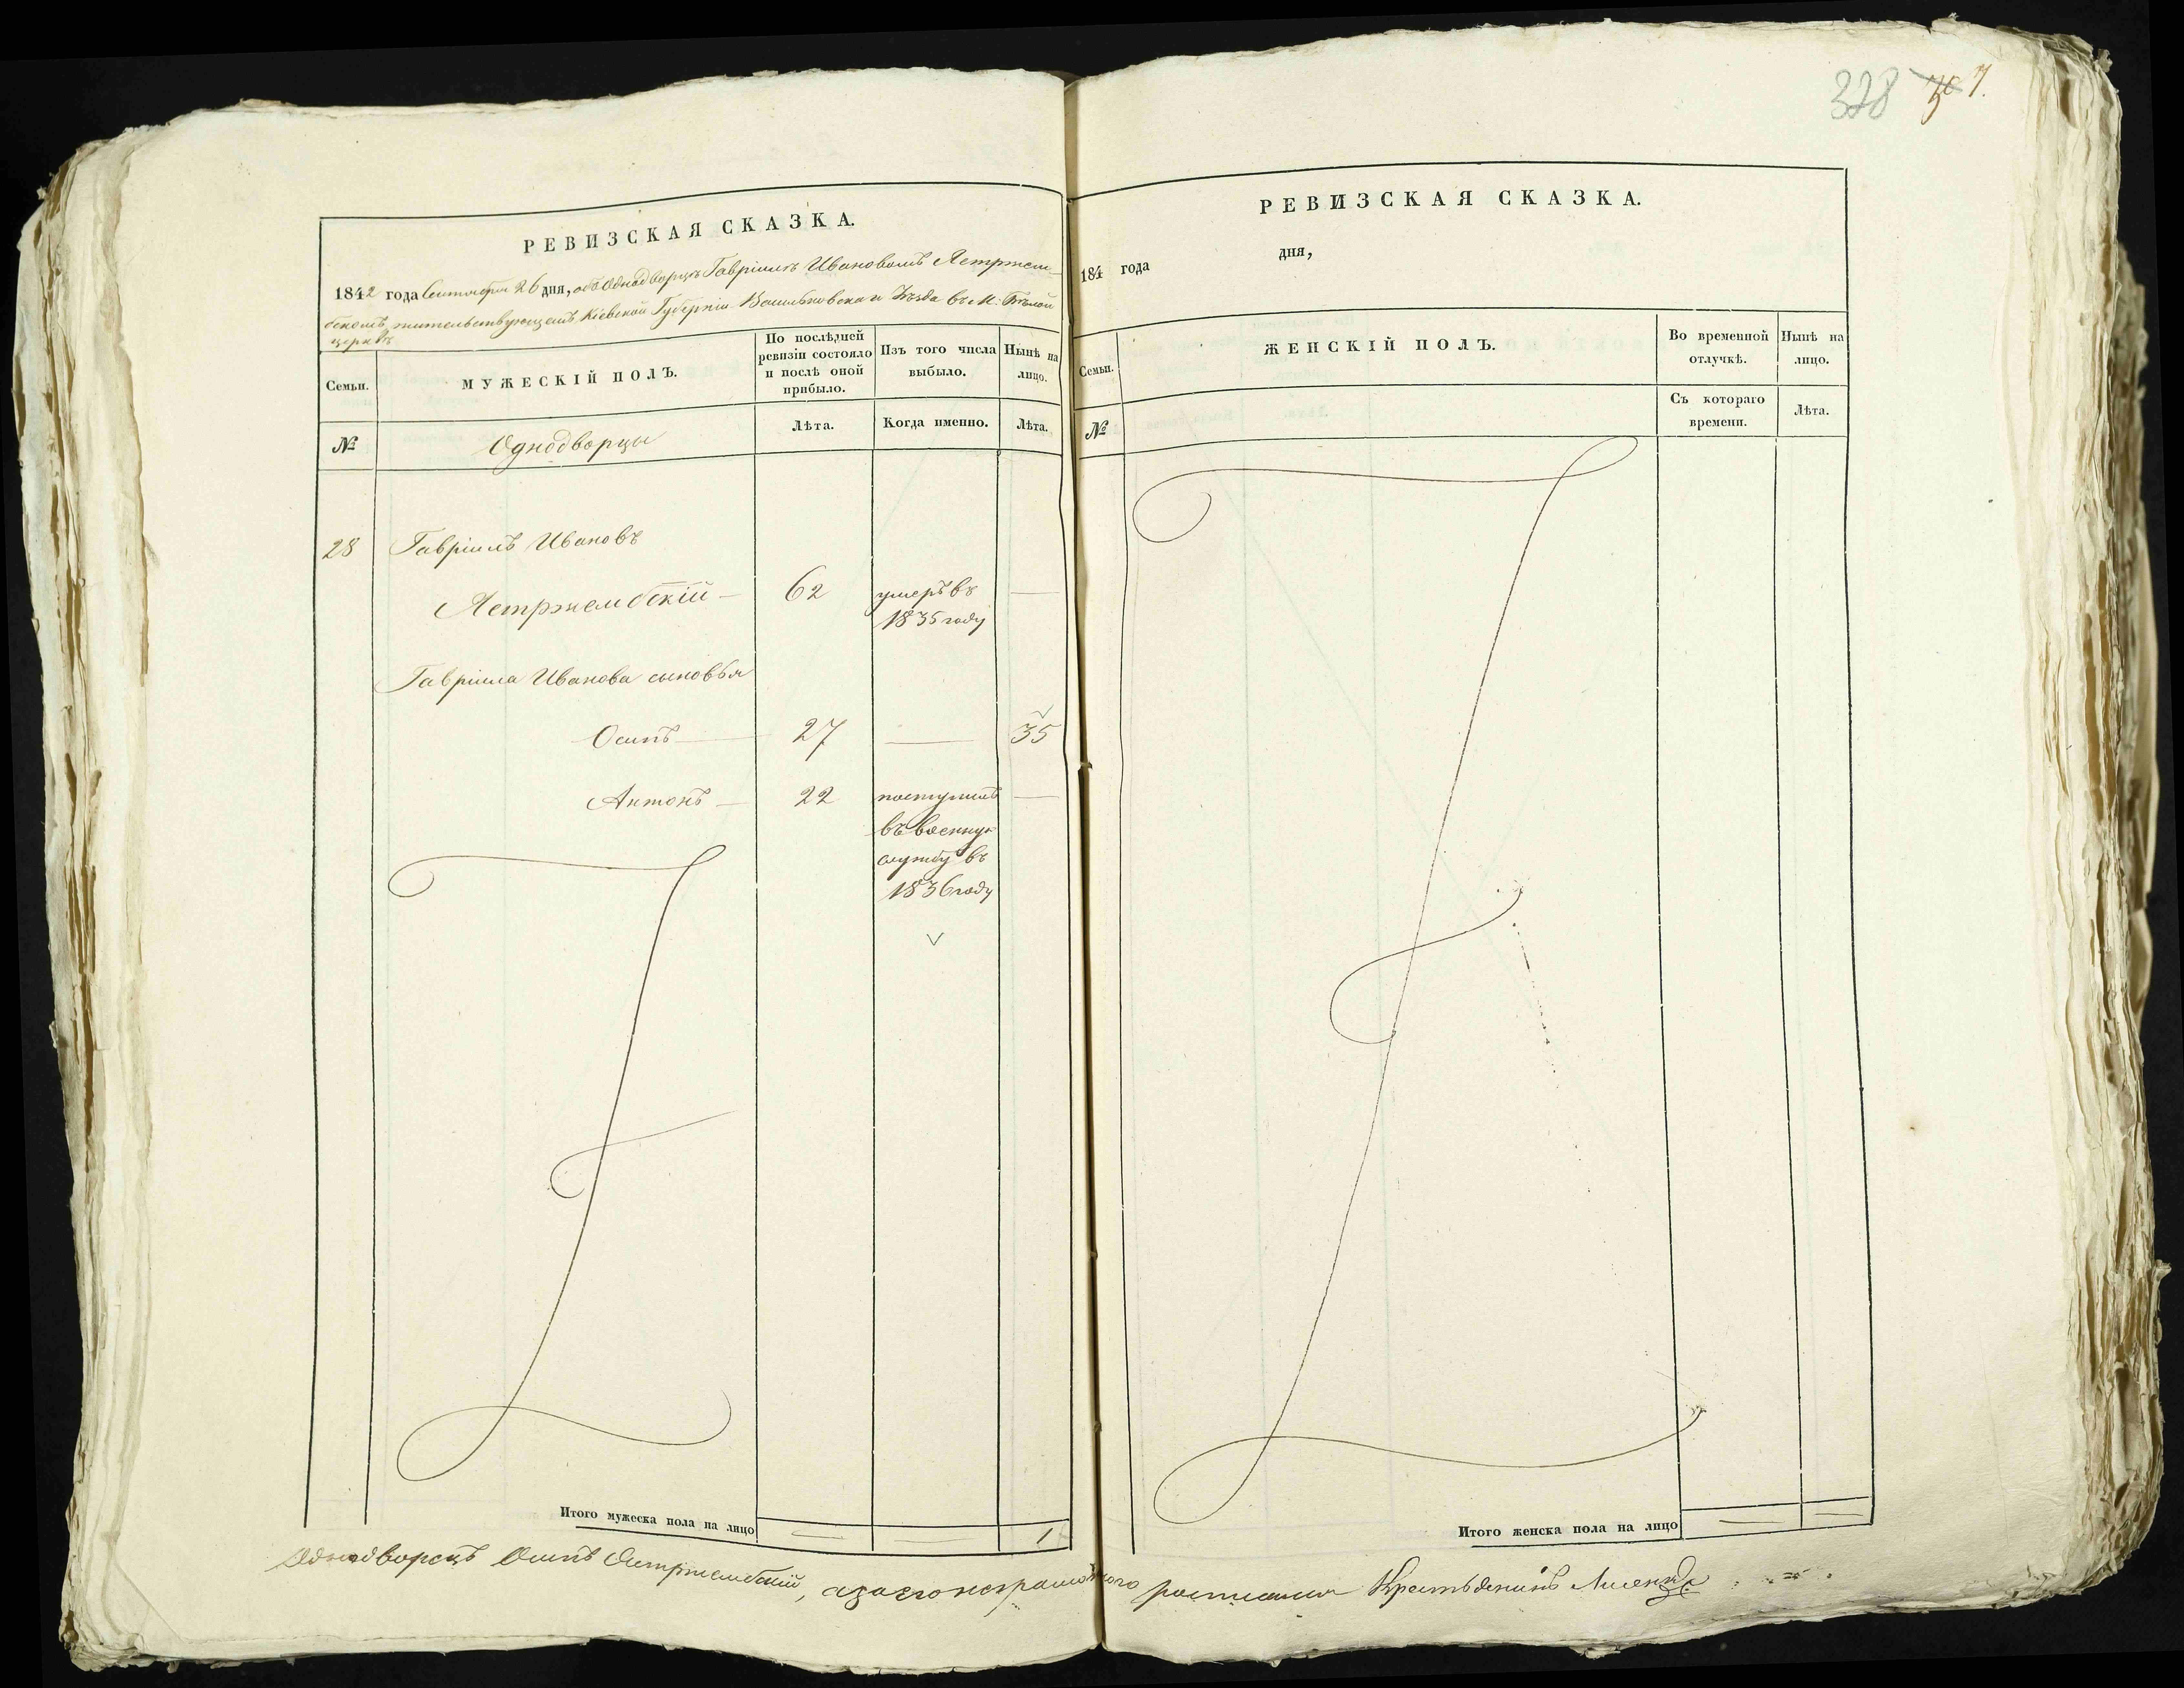 328 7.
РЕВИЗСКАЯ СКАЗКА.
1842 года Сентября 26 дня, объ Однодворцѣ Гавріилѣ Ивановомъ Ястржем-
бскомъ, жительствующемъ Кіевской Губерніи Васильковскаго Уѣзда въ М: Бѣлой
церквѣ
Семьи.
МУЖЕСКІЙ ПОЛЪ.
По послѣдней ревизіи состояло и послѣ оной прибыло.
Изъ того числа выбыло.
Нынѣ на лицо.
№
Однодворцы
Лѣта.
Когда именно.
Лѣта.
28 Гавріилъ Ивановъ
Ястржембскій — 62 умеръ въ —
1835 году
Гавріила Иванова сыновья
Осипъ — 27 — 35
Антонъ — 22 поступилъ —
въ военную
службу въ
1836 году
Итого мужеска пола на лицо — — 1
РЕВИЗСКАЯ СКАЗКА.
184 года дня,
Семьи.
ЖЕНСКІЙ ПОЛЪ.
Во временной отлучкѣ.
Нынѣ на лицо.
№
Съ котораго времени.
Лѣта.
Итого женска пола на лицо — —
Однодворецъ Осипъ Ястржембскій, а за его неграмотного росписался